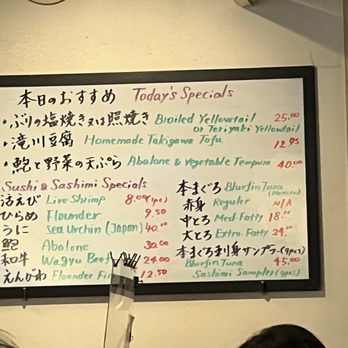 本日のおすすめ Today's Specials
・ぶりの塩焼き又は照焼き Broiled Yellowtail 25.00
or Teriyaki Yellowtail
・滝川豆腐 Homemade Takigawa Tofu 12.95
・鮑と野菜の天ぷら Abalone & Vegetable Tempura 40.00
Sushi & Sashimi Specials
活えび Live Shrimp 8.00 (1pc)
ひらめ Flounder 9.50
うに Sea Urchin (Japan) 40.00
鮑 Abalone 30.00
和牛 Wagyu Beef 24.00
えんがわ Flounder Fin 12.50
本まぐろ Bluefin Tuna
(Mexico)
赤身 Reguler N/A
中とろ Med Fatty 18.00
大とろ Extra Fatty 24.00
本まぐろ刺身サンプラー(9pcs)
Bluefin Tuna 45.00
Sashimi Sampler (9pcs)